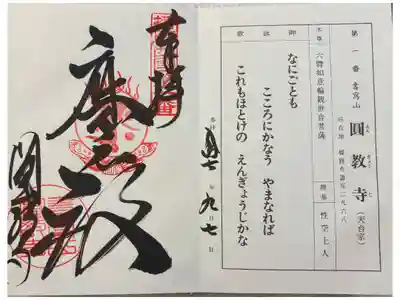 第一番 書寫山
圓教寺 (天台宗)
所在地 姫路市書写二九六八
本尊 六臂如意輪観世音菩薩
開基 性空上人
御詠歌
なにごとも
こころにかなう やまなれば
これもほとけの えんぎょうじかな
年 九月 七日
奉拝
摩尼殿
圓教寺